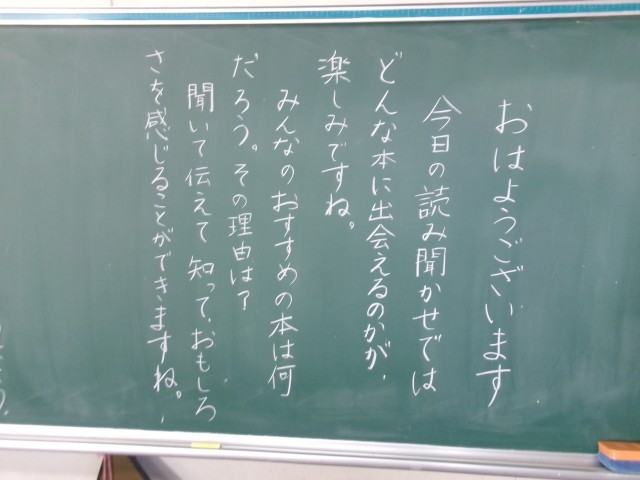 おはようございます
今日の読み聞かせでは
どんな本に出会えるのかが、
楽しみですね。
みんなのおすすめの本は何
だろう。その理由は？
聞いて伝えて知って、おもしろ
さを感じることができますね。